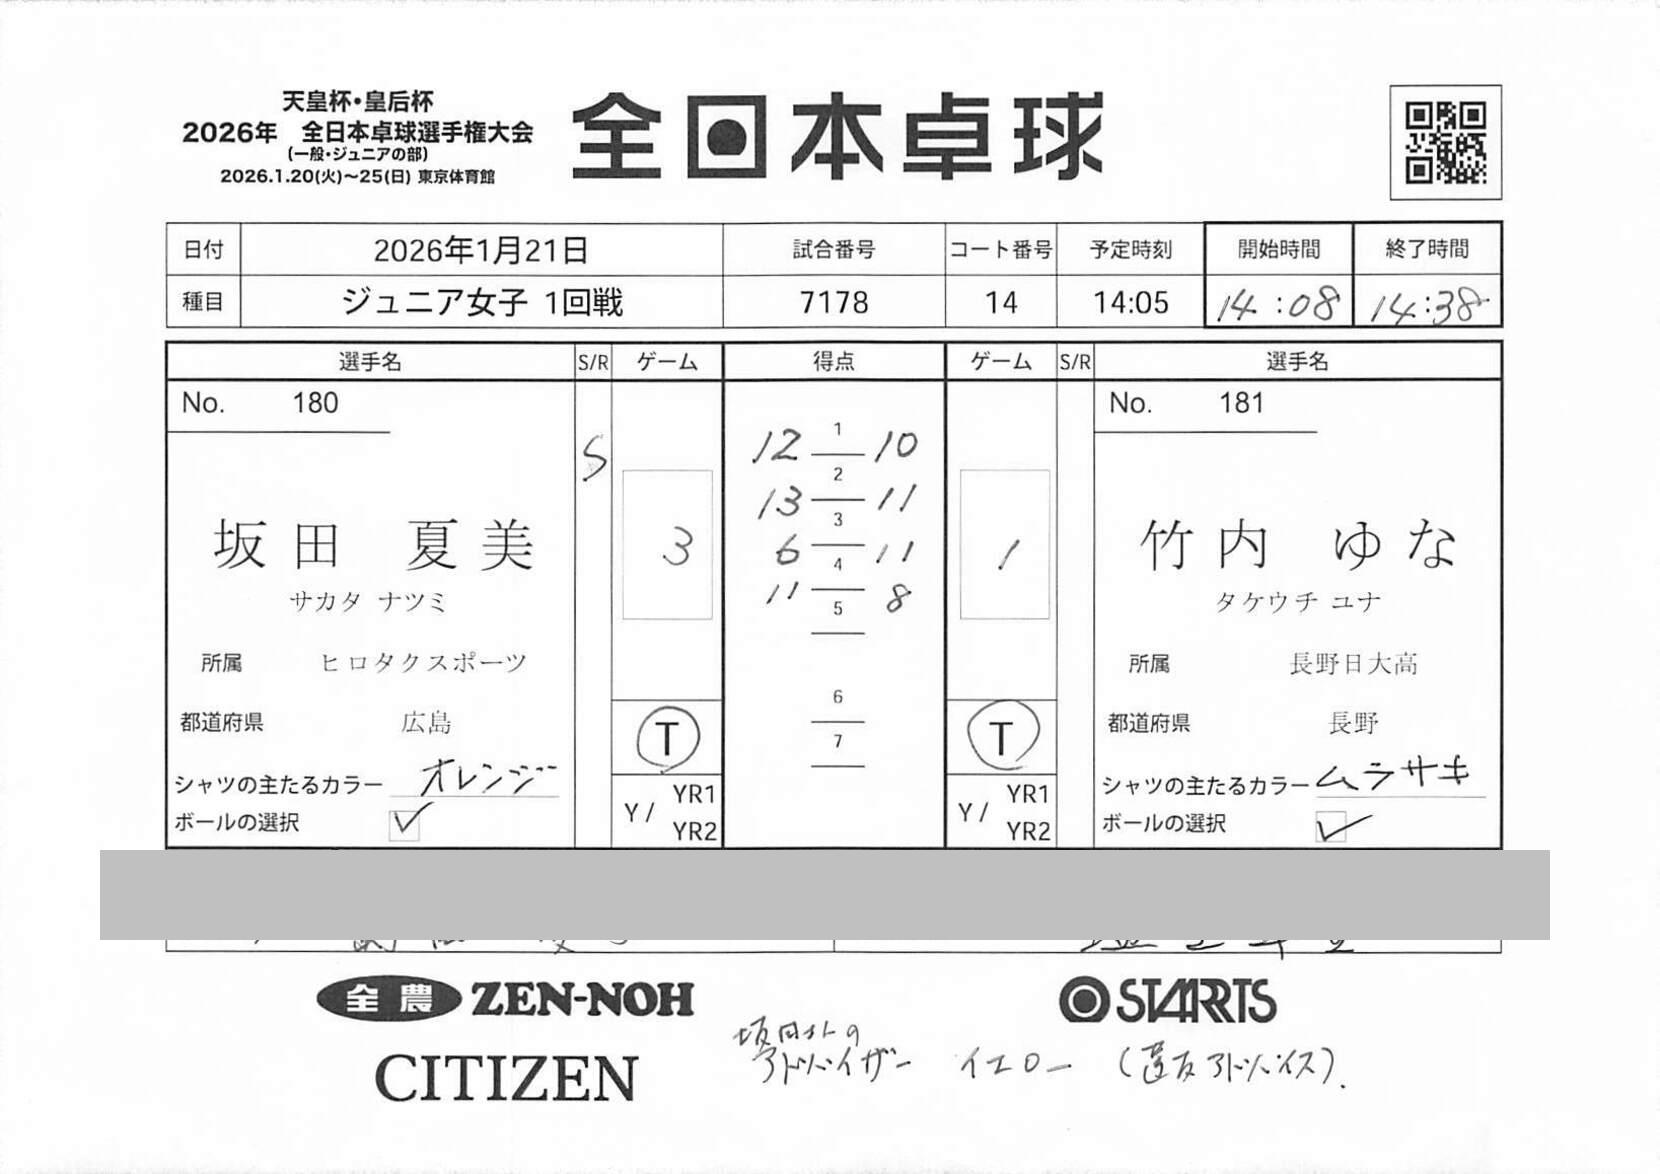 天皇杯・皇后杯
2026年 全日本卓球選手権大会
(一般・ジュニアの部)
2026.1.20(火)~25(日) 東京体育館
全日本卓球
日付 2026年1月21日 試合番号 コート番号 予定時刻 開始時間 終了時間
種目 ジュニア女子 1回戦 7178 14 14:05 14:08 14:38
選手名 S/R ゲーム 得点 ゲーム S/R 選手名
No. 180 No. 181
S
12 1 10
13 2 11
6 3 11
11 4 8
5
6
7
3 1
坂田 夏美 竹内 ゆな
サカタ ナツミ タケウチ ユナ
所属 ヒロタクスポーツ 所属 長野日大高
都道府県 広島 T T 都道府県 長野
シャツの主たるカラー オレンジ シャツの主たるカラー ムラサキ
ボールの選択 ✓ Y/ YR1 YR2 Y/ YR1 YR2 ボールの選択 ✓
全農 ZEN-NOH STARTS
CITIZEN
坂田さんの
アドバイザー イエロー (違反アドバイス).